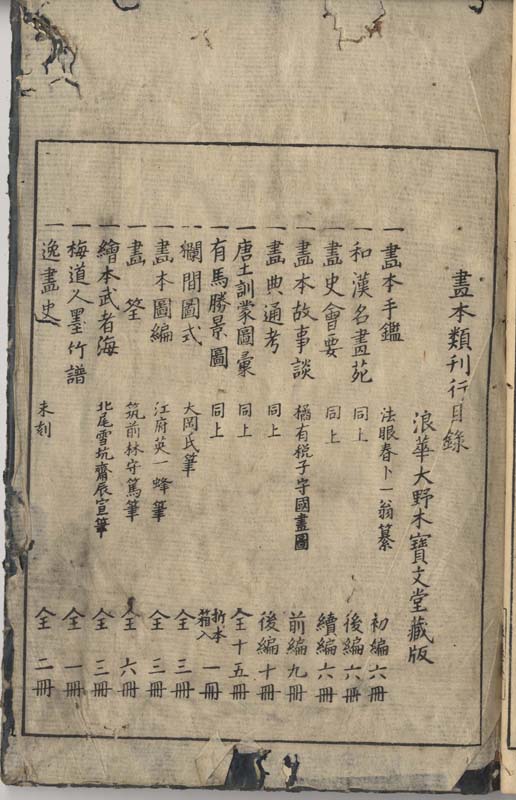 畫本類刊行目錄
浪華大野木寶文堂藏版
一 畫本手鑑 法眼春卜一翁纂 初編六冊
一 和漢名畫苑 同上 後編六冊
一 畫史會要 同上 續編六冊
一 畫本故事談 橘有税子守國畫圖 前編九冊
一 畫典通考 同上 後編十冊
一 唐土訓蒙圖彙 同上 全十五冊
一 有馬勝景圖 同上 折本箱入 一冊
一 欄間圖式 大岡氏筆 全 三冊
一 畫本圖編 江府英一蜂筆 全 三冊
一 畫筌 筑前林守篤筆 全 六冊
一 繪本武者海 北尾雪坑齋辰宣筆 全 三冊
一 梅道人墨竹譜 全 一冊
一 逸畫史 未刻 全 二冊